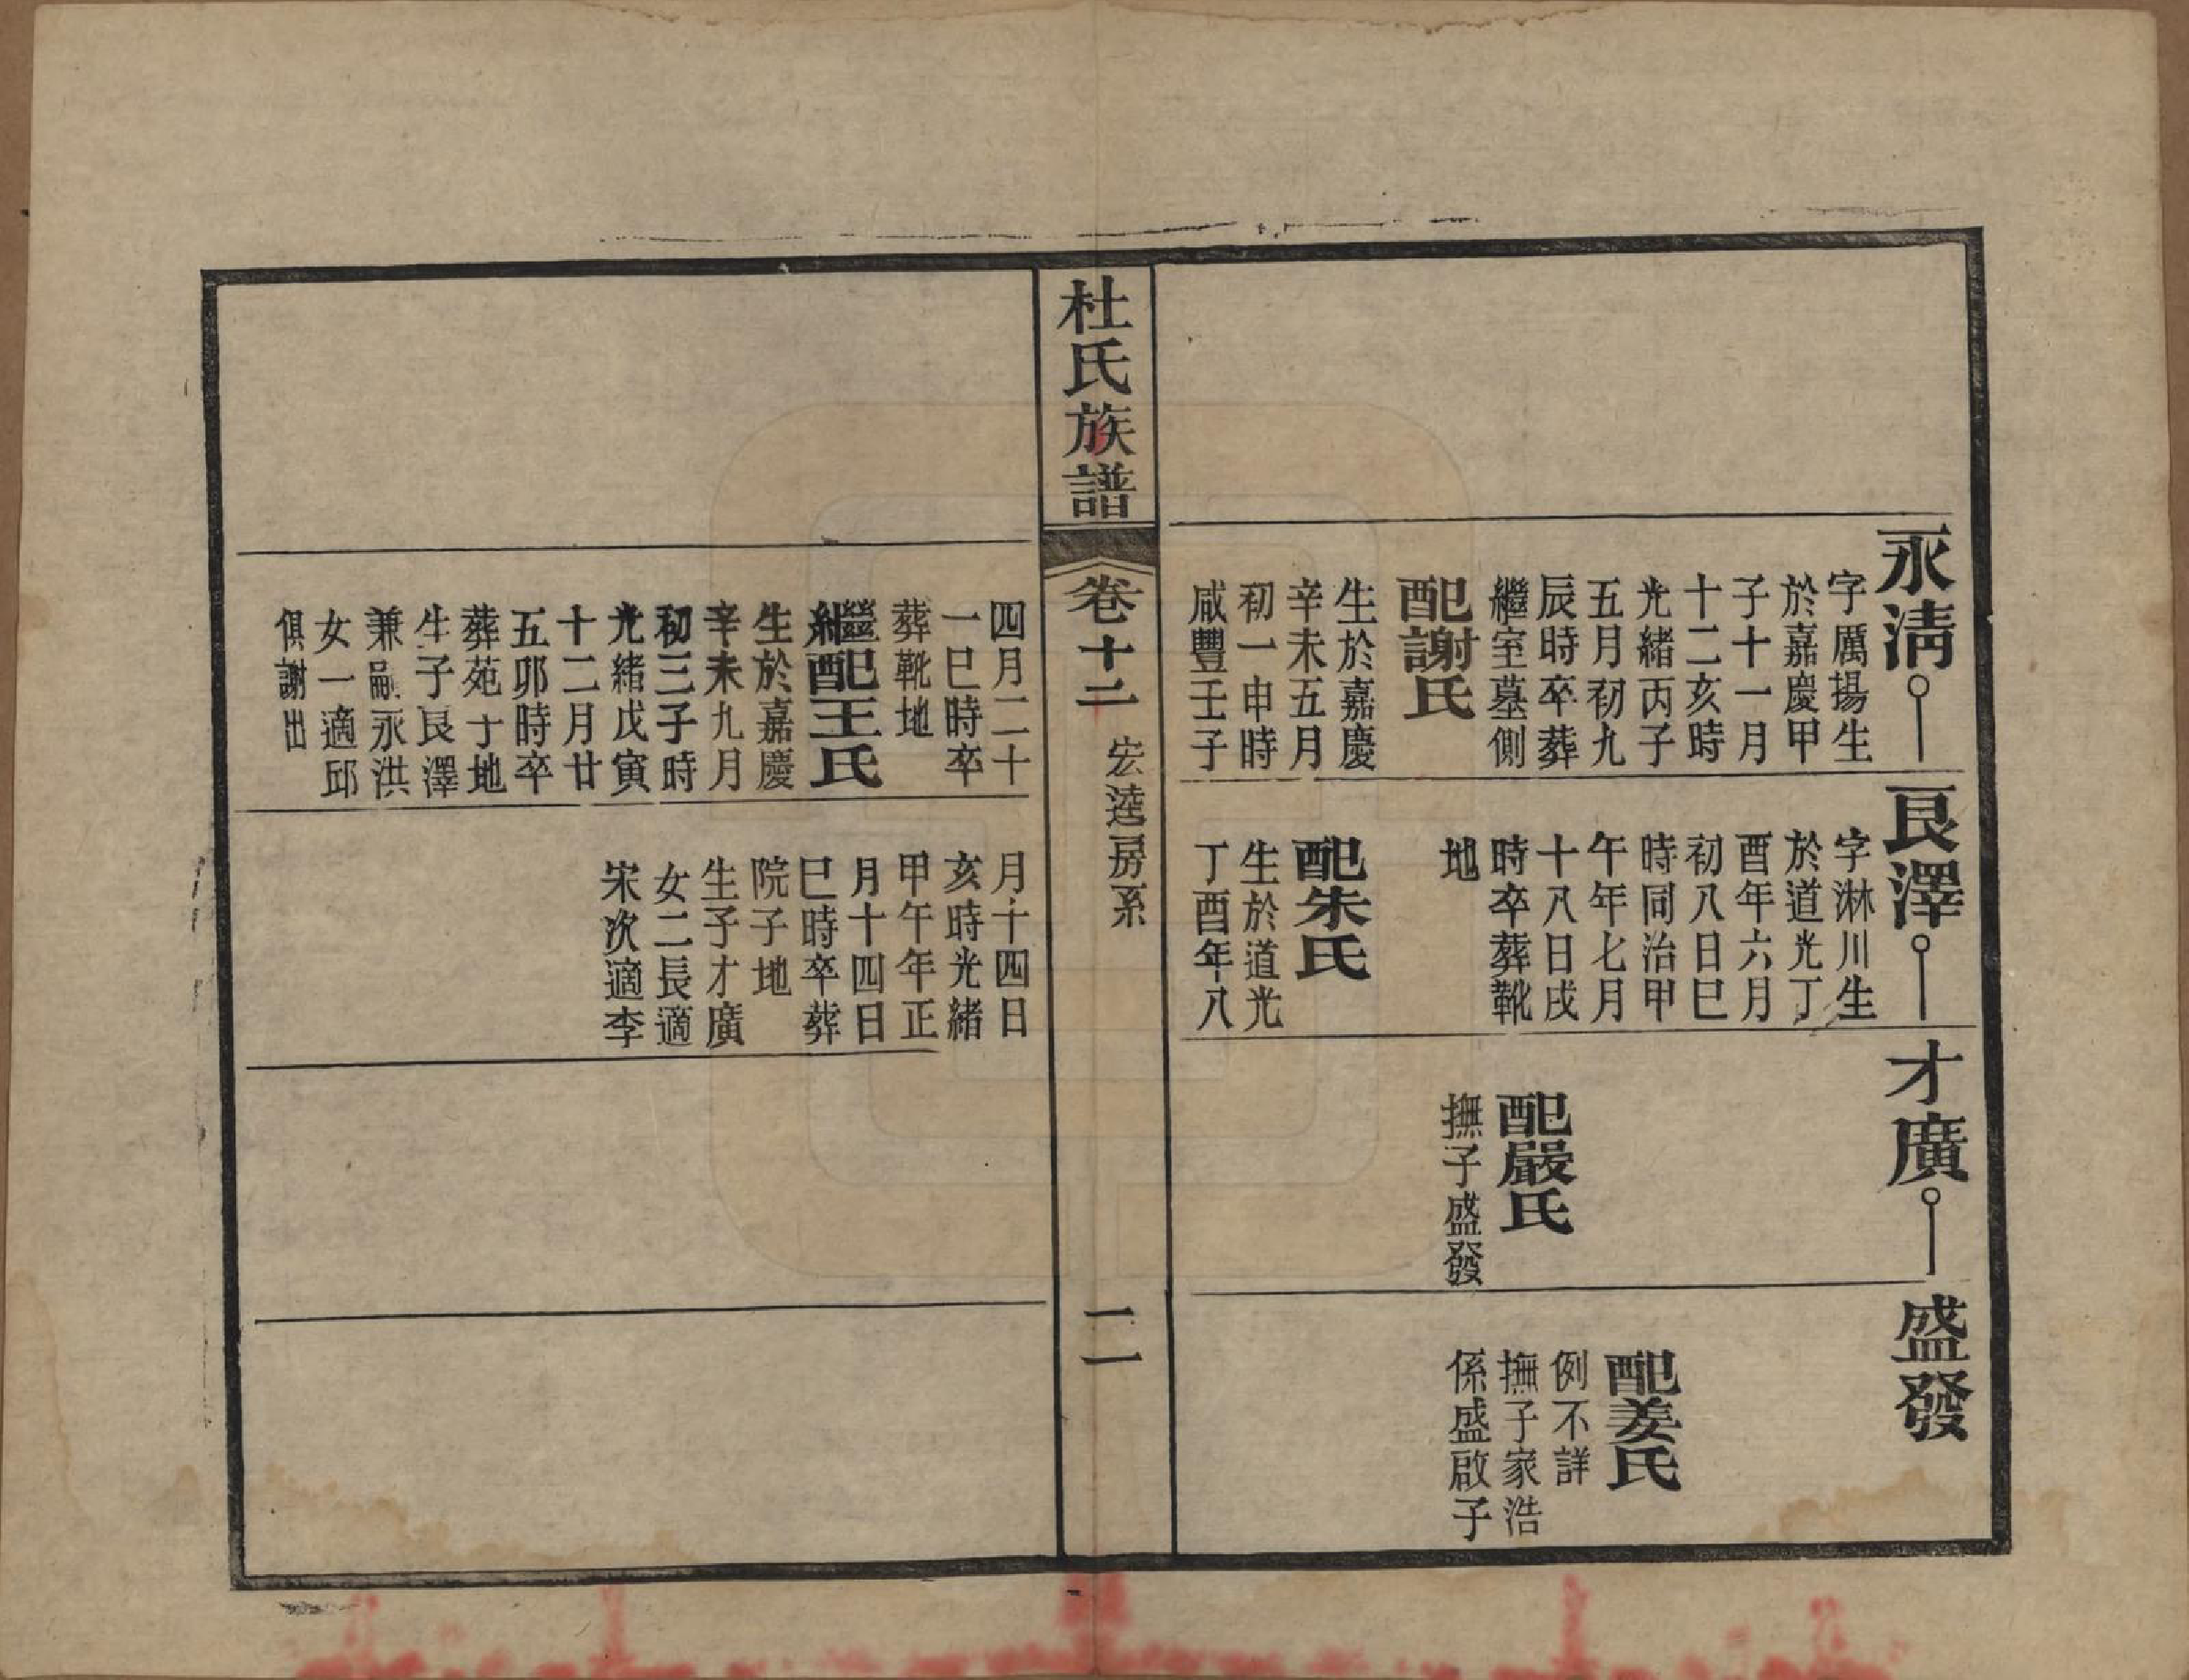 永淸
字厲揚生
於嘉慶甲
子十一月
十二亥時
光緒丙子
五月初九
辰時卒葬
繼室墓側
配謝氏
生於嘉慶
辛未五月
初一申時
咸豐壬子
四月二十
一巳時卒
葬靴地
繼配王氏
生於嘉慶
辛未九月
初三子時
光緒戊寅
十二月廿
五卯時卒
葬苑于地
生子良澤
兼嗣永洪
女一適邱
俱謝出
良澤
字淋川生
於道光丁
酉年六月
初八日巳
時同治甲
午年七月
十八日戌
時卒葬靴
地
配朱氏
生於道光
丁酉年八
月十四日
亥時光緒
甲午年正
月十四日
巳時卒葬
院子地
生子才廣
女二長適
宋次適李
才廣
配嚴氏
撫子盛發
盛發
配姜氏
例不詳
撫子家浩
係盛啟子
杜氏族譜
卷十二
宏逵房系
二一